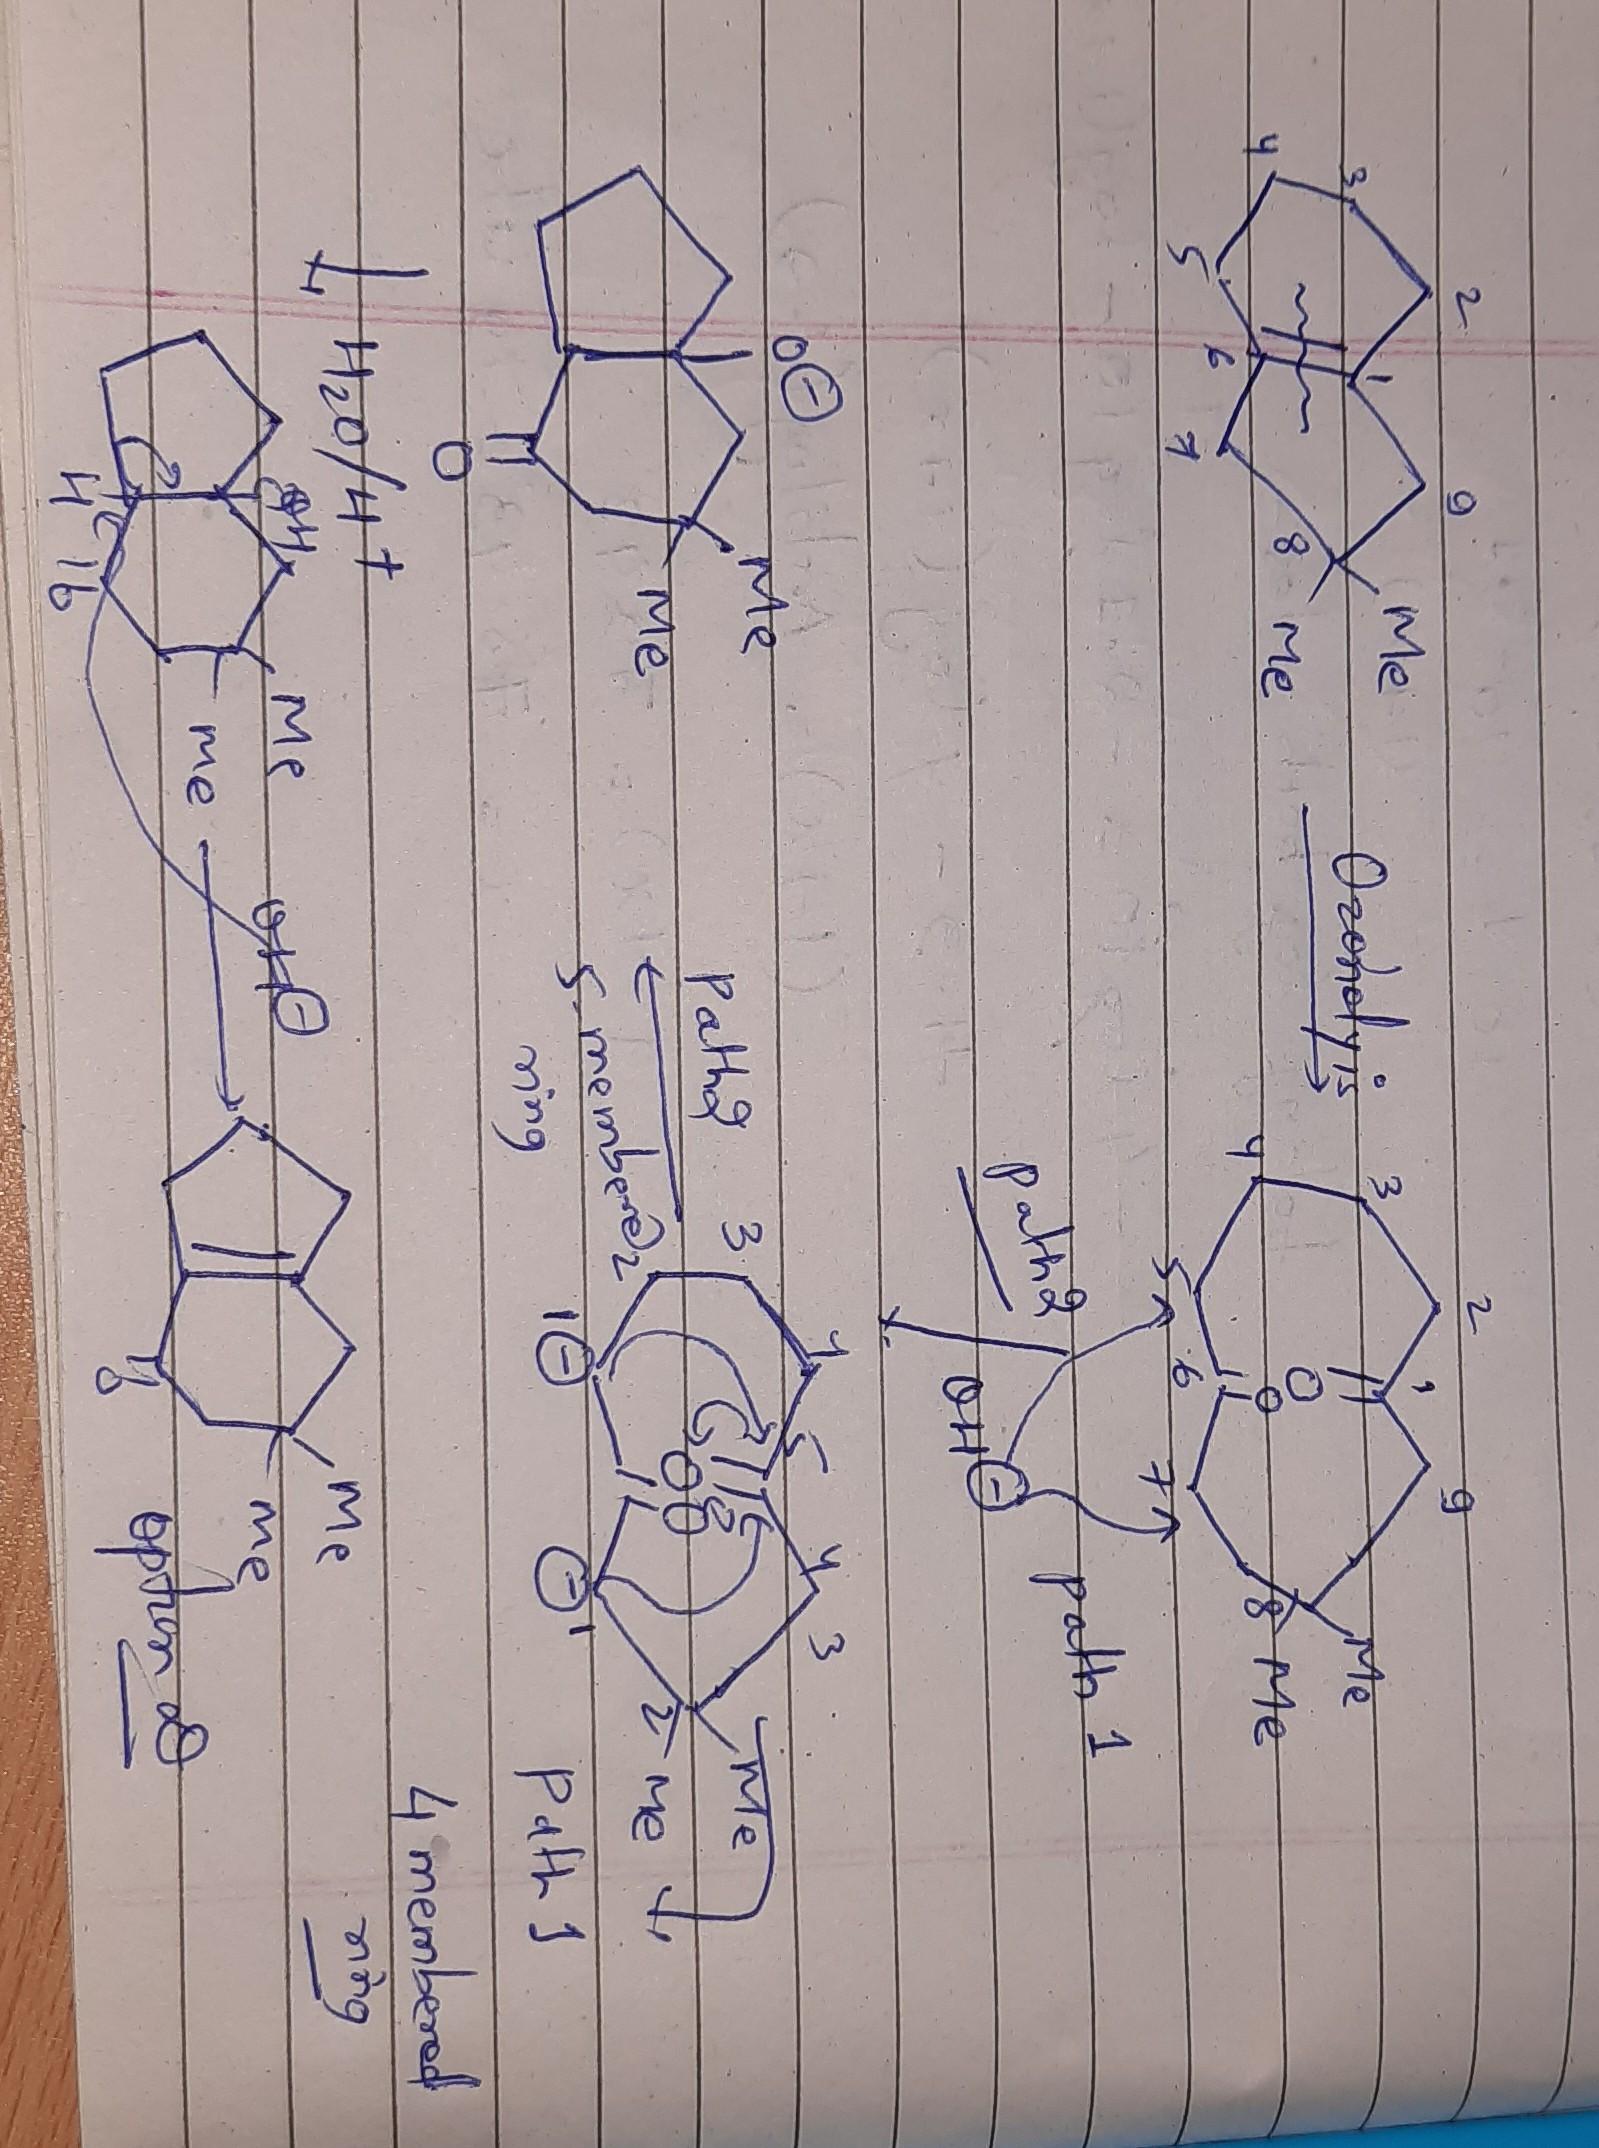 2 9 Me
3 1
4 5 6 7 8 Me
Ozonolysis
3 2 1 9
4 5 6 7 8
O O
Me
Me
path 2
path 1
OH⊖
O⊖
Me
Me
O
Path 2
5-membered
ring
3 4 5 4 3
2 1 1 2
⊖ ⊖
O O
Me
Me
Path 1
4 membered
ring
H2O/H+
OH
H
Me
Me
OH⊖
Me
Me